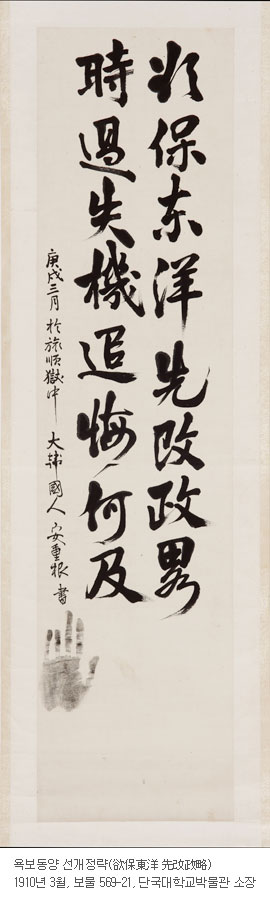 欲保東洋先改政畧
時過失機追悔何及
庚戌三月 於旅順獄中 大韓國人 安重根 書
욕보동양 선개정략(欲保東洋 先改政略)
1910년 3월, 보물 569-21, 단국대학교박물관 소장